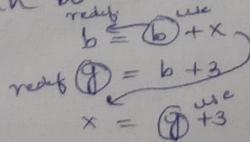 redef use
b = b + x
redef y = b + 3
use
x = y + 3